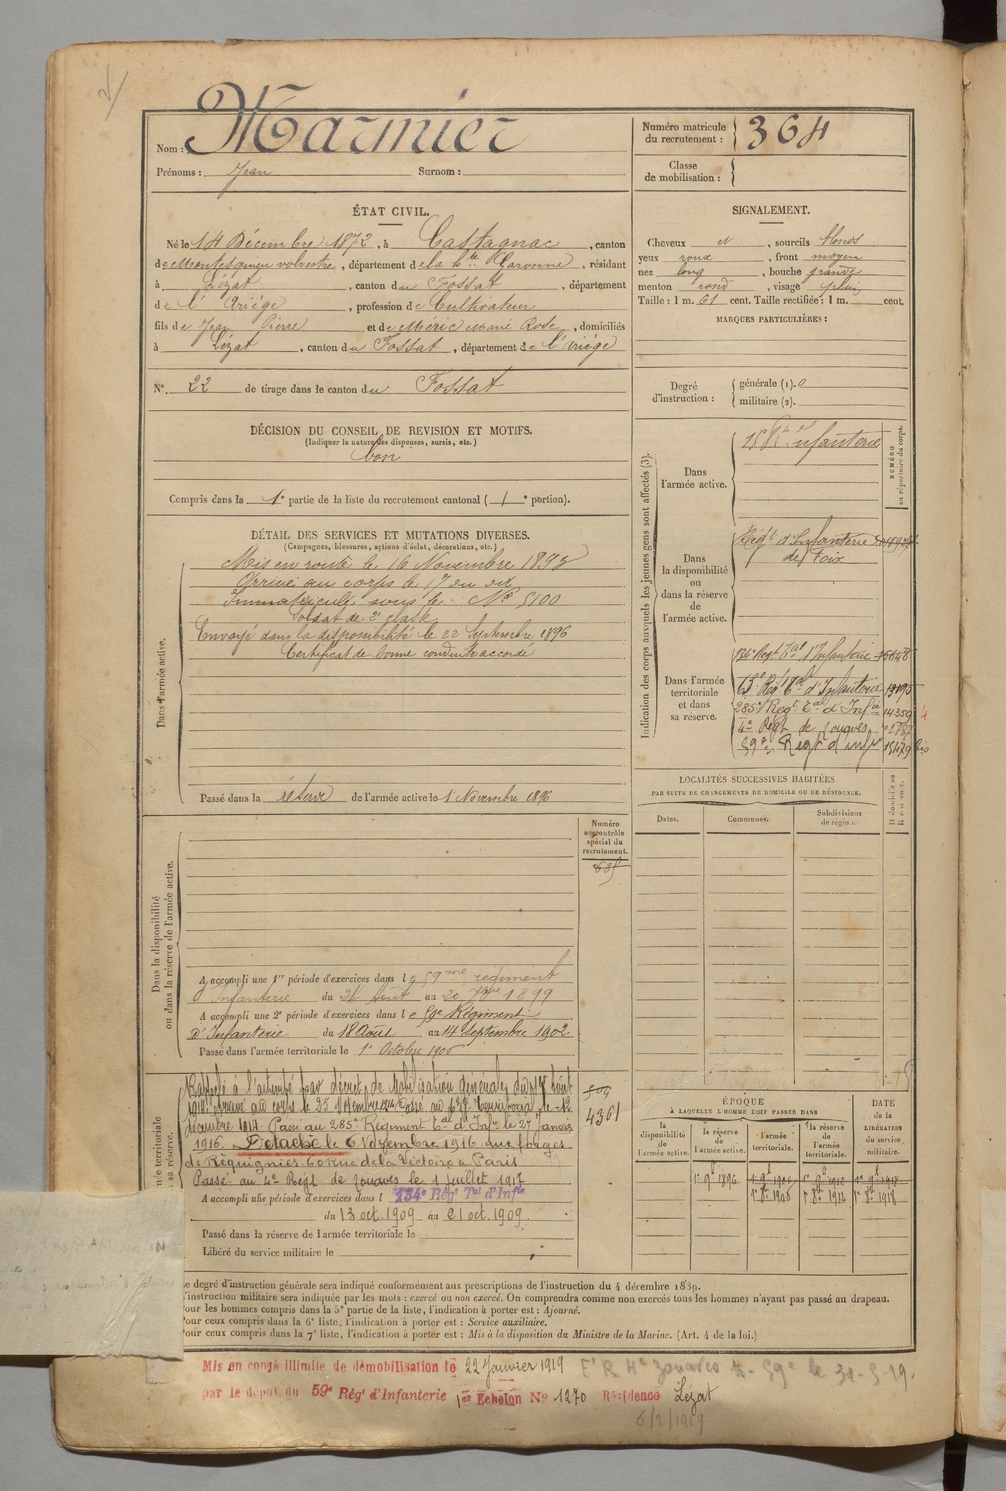 Nom : Marmier
Prénoms : Jean Surnom :
Numéro matricule du recrutement : 364
Classe de mobilisation :
ÉTAT CIVIL.
Né le 14 Décembre 1872, à Castagnac, canton
de Montesquieu volvestre, département de la hte Garonne, résidant
à Lézat, canton du Fossat, département
de l' Ariége, profession de Cultivateur
fils de Jean Pierre et de Méric Marie Rose, domiciliés
à Lézat, canton du Fossat, département de l'ariége
N° 22 de tirage dans le canton du Fossat
DÉCISION DU CONSEIL DE REVISION ET MOTIFS.
(Indiquer la nature des dispenses, sursis, etc.)
bon
Compris dans la 1e partie de la liste du recrutement cantonal ( portion).
DÉTAIL DES SERVICES ET MUTATIONS DIVERSES.
(Campagnes, blessures, actions d'éclat, décorations, etc.)
Dans l'armée active.
Mis en route le 16 Novembre 1893
Arrivé au corps le 17 du dit
Immatriculé sous le N° 5100
Soldat de 2e classe
Envoyé dans la disponibilité le 22 Septembre 1896
Certificat de bonne conduite accordé
Passé dans la réserve de l'armée active le 1 Novembre 1896
Dans la disponibilité ou dans la réserve de l'armée active.
Numéro au contrôle spécial du recrutement.
A accompli une 1re période d'exercices dans le 59me régiment
d'Infanterie du 24 Août au 20 7bre 1899
A accompli une 2e période d'exercices dans le 59e Régiment
d'Infanterie du 18 Août au 14 septembre 1902
Passé dans l'armée territoriale le 1er Octobre 1906
Rappelé à l'activité par décret de Mobilisation générale du 1er Août
1914. Arrivé au corps le 25
décembre 1914. Passé au 285e Régiment tal d'Infie le 27 Janvier
1916. Détaché le 6 Novembre 1916 aux forges
de Réquignies 60 Rue de la Victoire à Paris
Passé au 4e Regt de zouaves le 1 juillet 1917
A accompli une période d'exercices dans l 134e Régt Tal d'Infie
du 13 oct. 1909 au 21 oct. 1909.
Passé dans la réserve de l'armée territoriale le
Libéré du service militaire le
4361
SIGNALEMENT.
Cheveux et, sourcils blonds
yeux roux, front moyen
nez long, bouche grande
menton rond, visage plein
Taille : 1 m. 61 cent. Taille rectifiée : 1 m. cent.
MARQUES PARTICULIÈRES :
Degré d'instruction : générale (1). 0
militaire (2).
Indication des corps auxquels les jeunes gens sont affectés (3).
NUMÉRO au répertoire du corps.
Dans l'armée active.
Infanterie
Dans la disponibilité ou dans la réserve de l'armée active.
Régt d'Infanterie
de Foix
Dans l'armée territoriale et dans sa réserve.
134e Regt Tal d'Infanterie
Regt tal d'Infanterie
285e Regt tal d'Infie 14359
4e Régt de zouaves
59e Regt d'infie 15479 bis
LOCALITÉS SUCCESSIVES HABITÉES
PAR SUITE DE CHANGEMENTS DE DOMICILE OU DE RÉSIDENCE.
Dates. Communes. Subdivisions de région.
ÉPOQUE
À LAQUELLE L'HOMME DOIT PASSER DANS
DATE de la LIBÉRATION du service militaire.
la disponibilité de l'armée active. la réserve de l'armée active. l'armée territoriale. la réserve de l'armée territoriale.
1er 9bre 1896 1er 9bre 1906 1er 9bre 1912 1er 9bre 1918
1er 8bre 1906 1er 8bre 1912 1er 8bre 1918
Le degré d'instruction générale sera indiqué conformément aux prescriptions de l'instruction du 4 décembre 1889.
L'instruction militaire sera indiquée par les mots : exercé ou non exercé. On comprendra comme non exercés tous les hommes n'ayant pas passé au drapeau.
Pour les hommes compris dans la 5e partie de la liste, l'indication à porter est : Ajourné.
Pour ceux compris dans la 6e liste, l'indication à porter est : Service auxiliaire.
Pour ceux compris dans la 7e liste, l'indication à porter est : Mis à la disposition du Ministre de la Marine. (Art. 4 de la loi.)
Mis en congé illimité de démobilisation le 22 Janvier 1919
par le dépôt du 59e Régt d'Infanterie 1er Echelon N° 1270 Résidence Lézat
6/2/1919